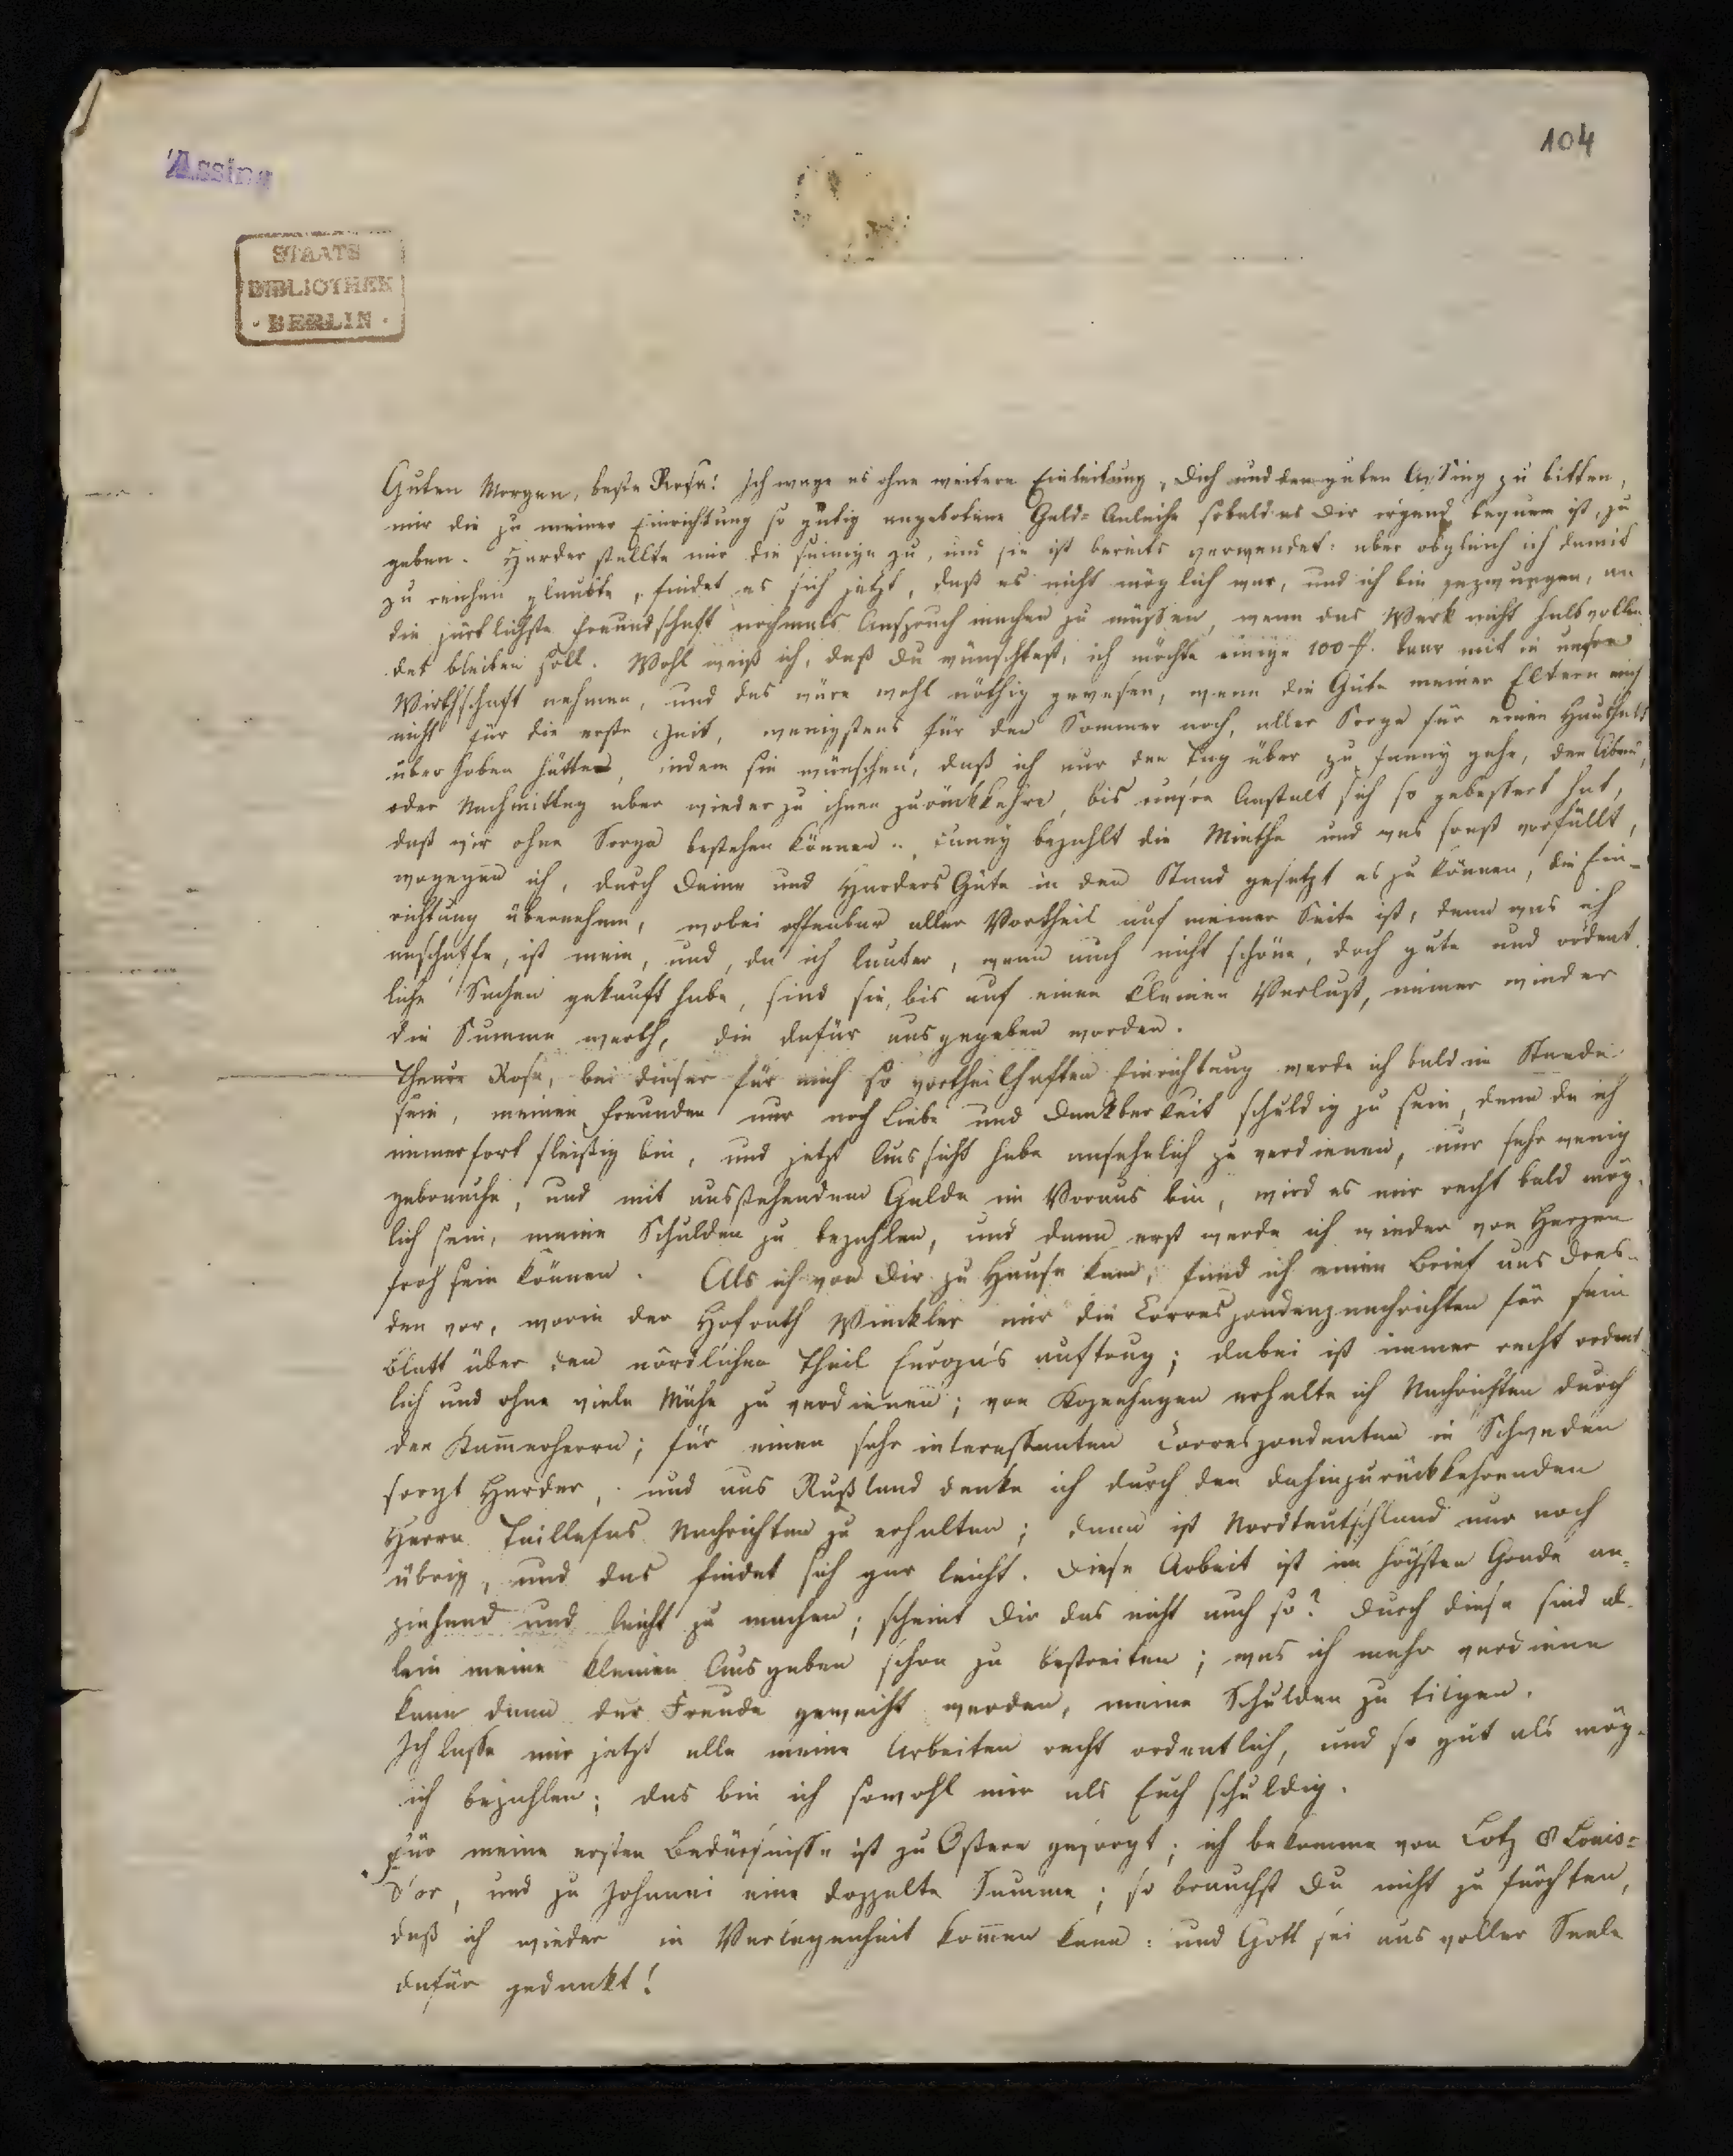 104
Assing
STAATS
BIBLIOTHEK
· BERLIN ·
Guten Morgen, beste Rosa! Ich wage es ohne weitere Einleitung, Dich und den guten Assing zu bitten,
mir die zu meiner Einrichtung so gütig angebotene Geld-Anleihe sobald es Dir irgend bequem ist, zu
geben. Harder stellte mir die seinige zu, und sie ist bereits verwendet: aber obgleich ich damit
zu reichen glaubte, findet es sich jetzt, daß es nicht möglich war, und ich bin gezwungen, an
die zärtlichste Freundschaft nochmals Anspruch machen zu müssen, wenn das Werk nicht halbvollen-
det bleiben soll. Wohl weiß ich, daß Du wünschtest, ich möchte einige 100 f. baar mit in unsre
Wirthschaft nehmen, und das wäre wohl nöthig gewesen, wenn die Güte meiner Eltern mich
nicht für die erste Zeit, wenigstens für den Sommer noch, aller Sorge für einen Haushalt
überhoben hätte, indem sie wünschen, daß ich nur den Tag über zu Fanny gehe, den Abend,
oder Nachmittag aber wieder zu ihnen zurückkehre, bis unsre Anstalt sich so gebessert hat,
daß wir ohne Sorge bestehen können. Fanny bezahlt die Miethe und was sonst vorfällt,
wogegen ich, durch Deine und Harders Güte in den Stand gesetzt es zu können, die Ein-
richtung übernehme, wobei offenbar aller Vortheil auf meiner Seite ist, denn was ich
anschaffe, ist mein, und, da ich lauter, wenn auch nicht schöne, doch gute und ordent-
liche Sachen gekauft habe, sind sie, bis auf einen kleinen Verlust, immer wieder
die Summe werth, die dafür ausgegeben worden.
Theure Rosa, bei dieser für mich so vortheilhaften Einrichtung werde ich bald im Stande
sein, meinen Freunden nur noch Liebe und Dankbarkeit schuldig zu sein, denn da ich
immerfort fleißig bin, und jetzt Aussicht habe ansehnlich zu verdienen, nur sehr wenig
gebrauche, und mit ausstehendem Gelde im Voraus bin, wird es mir recht bald mög-
lich sein, meine Schulden zu bezahlen, und dann erst werde ich wieder von Herzen
froh sein können. Als ich von Dir zu Hause kam, fand ich einen Brief aus Dres-
den vor, worin der Hofrath Winckler mir die Correspondenznachrichten für sein
Blatt über den nördlichen Theil Europa's auftrug; dabei ist immer recht ordent-
lich und ohne viele Mühe zu verdienen; von Kopenhagen erhalte ich Nachrichten durch
den Kam̄erherrn; für einen sehr interessanten Correspondenten in Schweden
sorgt Harder, und aus Rußland denke ich durch den dahinzurückkehrenden
Herrn Taillefas Nachrichten zu erhalten; dann ist Nordteutschland nur noch
übrig, und das findet sich gar leicht. Diese Arbeit ist im höchsten Grade an-
ziehend und leicht zu machen; scheint Dir das nicht auch so? Durch diese sind al-
lein meine kleinen Ausgaben schon zu bestreiten; was ich mehr verdiene
kann dann der Freude geweiht werden, meine Schulden zu tilgen.
Ich lasse mir jetzt alle meine Arbeiten recht ordentlich, und so gut als mög-
lich bezahlen; das bin ich sowohl mir als Euch schuldig.
Für meine ersten Bedürfnisse ist zu Ostern gesorgt; ich bekomme von Lotz 8 Louis-
d'or, und zu Johanni eine doppelte Summe; so brauchst Du nicht zu fürchten,
daß ich wieder in Verlegenheit kom̄en kann: und Gott sei aus voller Seele
dafür gedankt!